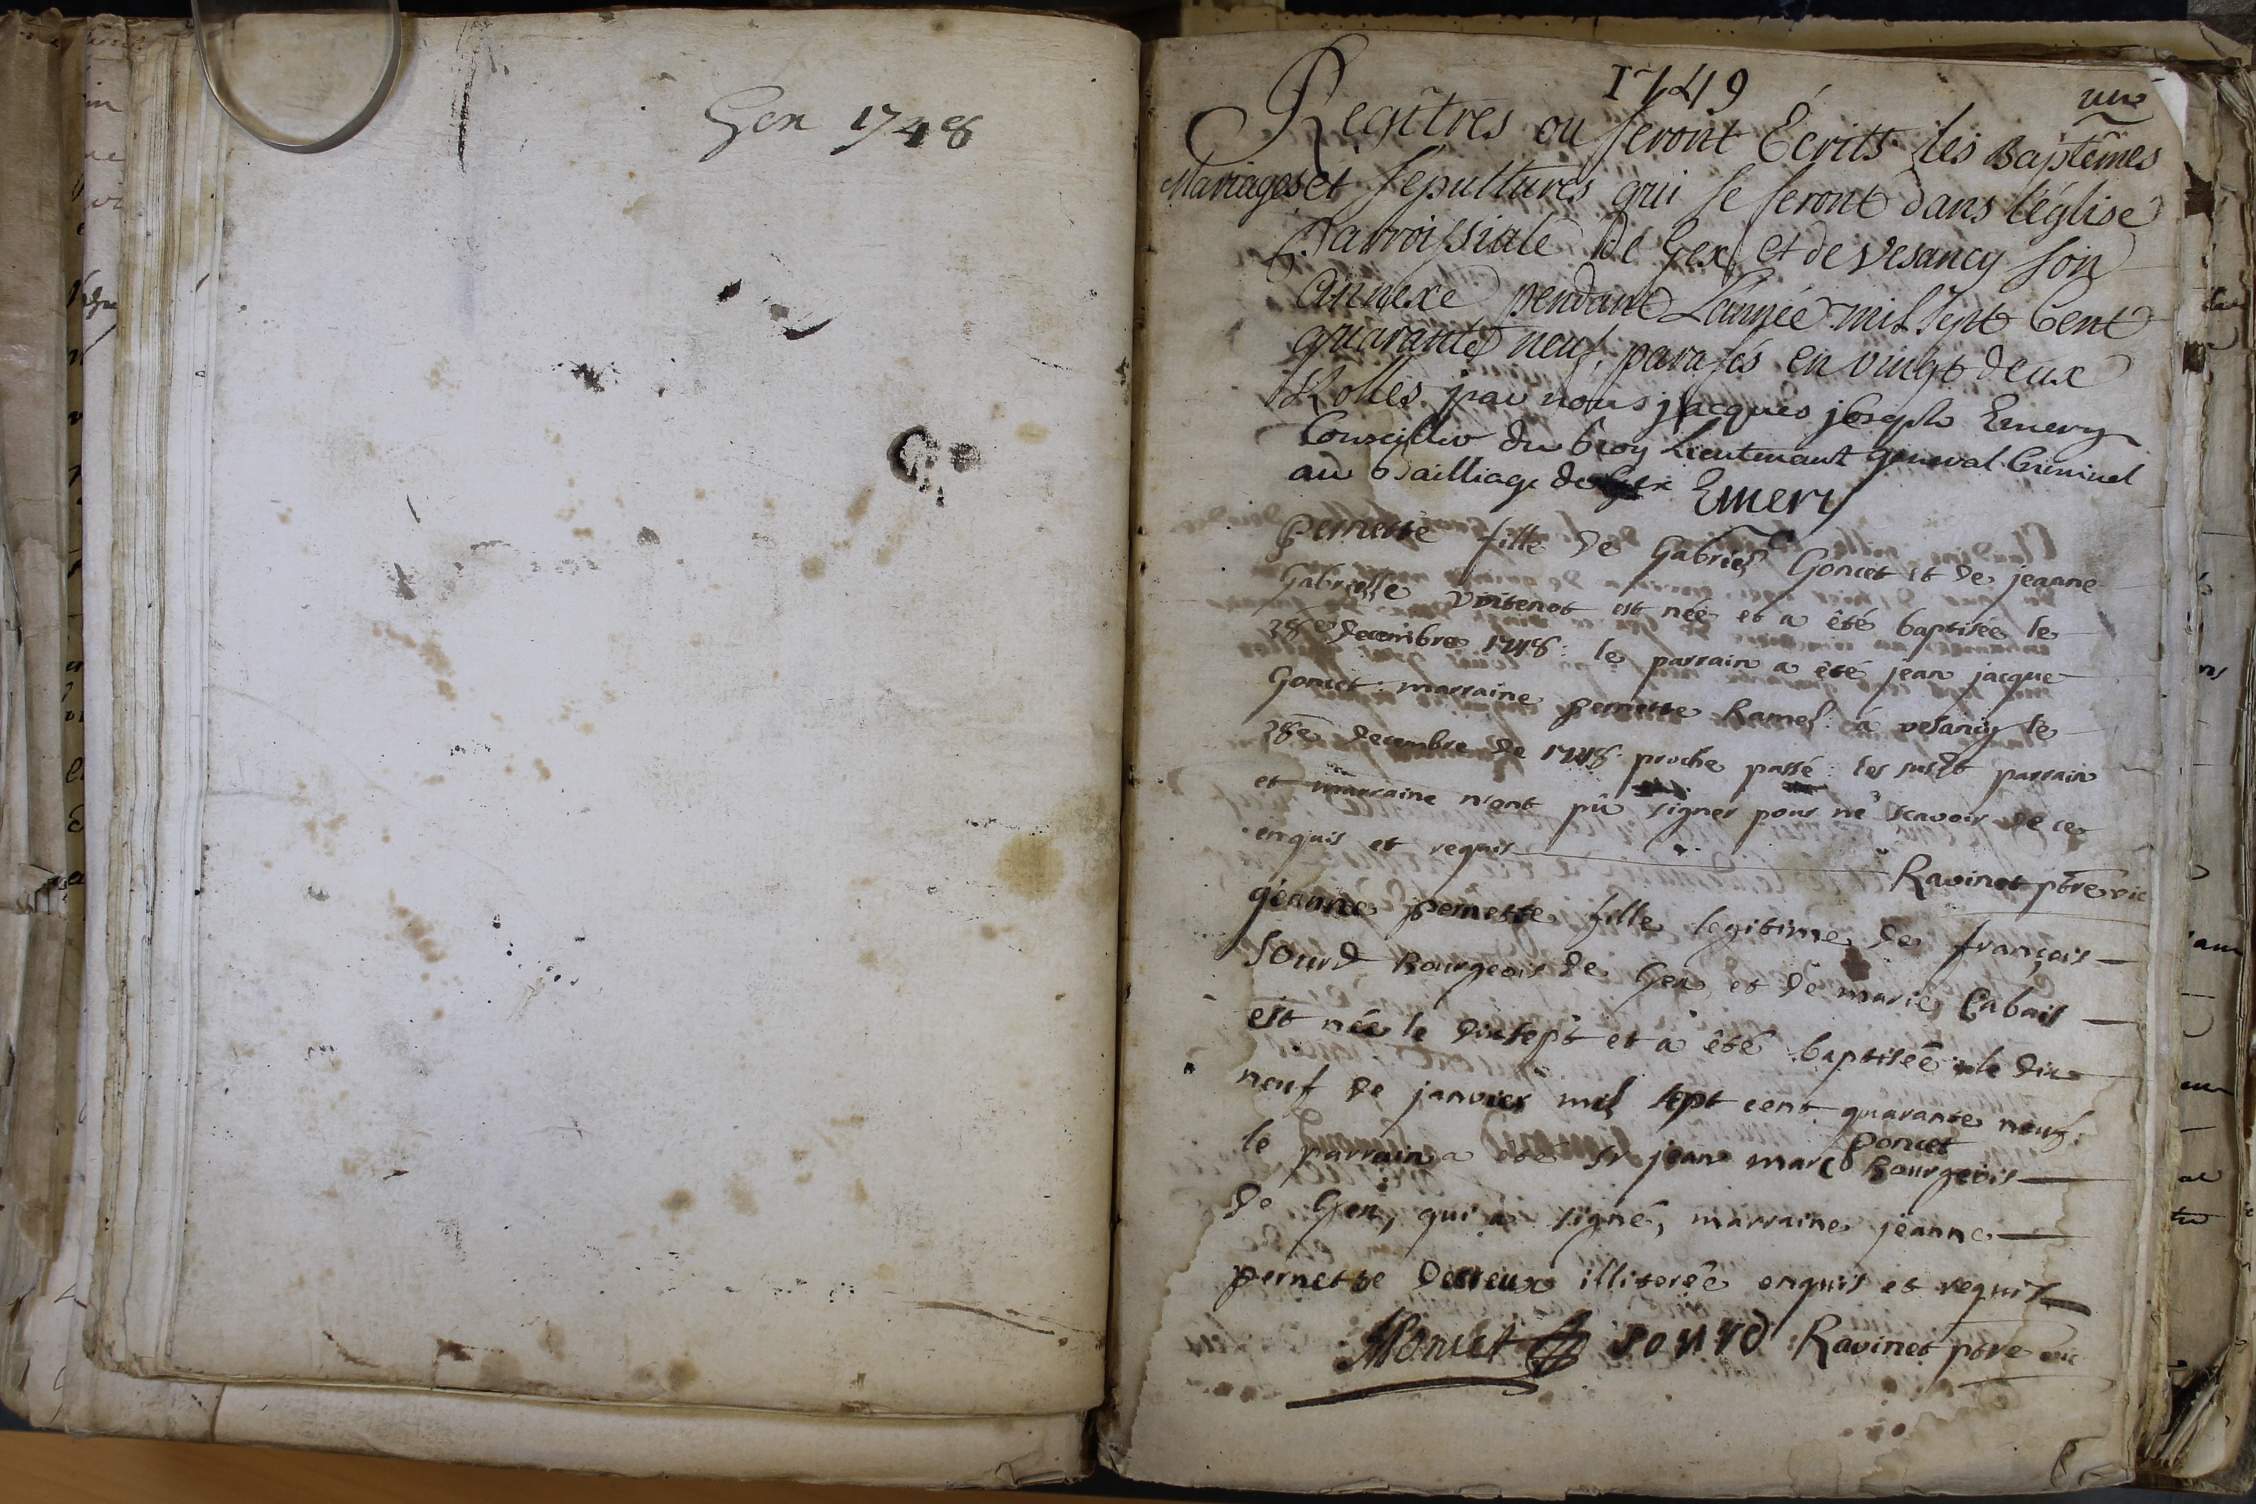 Gex 1748
1749
une
Regîtres ou seront Écrits les Baptêmes
Mariages et sepultures qui se feront dans l'église
Parroissiale de Gex et de Vesancy son
annexe pendant L'année mil sept Cent
quarante neuf, parafés en vingt deux
Rolles par nous jacques joseph Emery
Conseiller du Roy Lieutenant general Criminel
au Bailliage de Gex Emery
Pernette fille de Gabriel Goncet et de jeanne
Gabrielle Vuitenot est née et a êté baptisée le
28e decembre 1748: le parrain a êté jean jacque
Goncet: marraine pernette hamel: á vesancy le
28e decembre de 1748 proche passé: les susdt parrain
et marraine n'ont pû signer pour ne scavoir de ce
enquis et requis Ravinet ptre vic
jeanne pernette fille legitime de françois
Sourd Bourgeois de Gex, et de marie Cabail
est née le dixsept et a êté baptisée le dix
neuf de janvier mil sept cent quarante neuf:
poncet
le parrain a eté sr jean marc Bourgeois
de Gex, qui a signé, marraine jeanne
pernette Derieux illiterée enquis et requis
JMPoncet Sourd Ravinet ptre vic